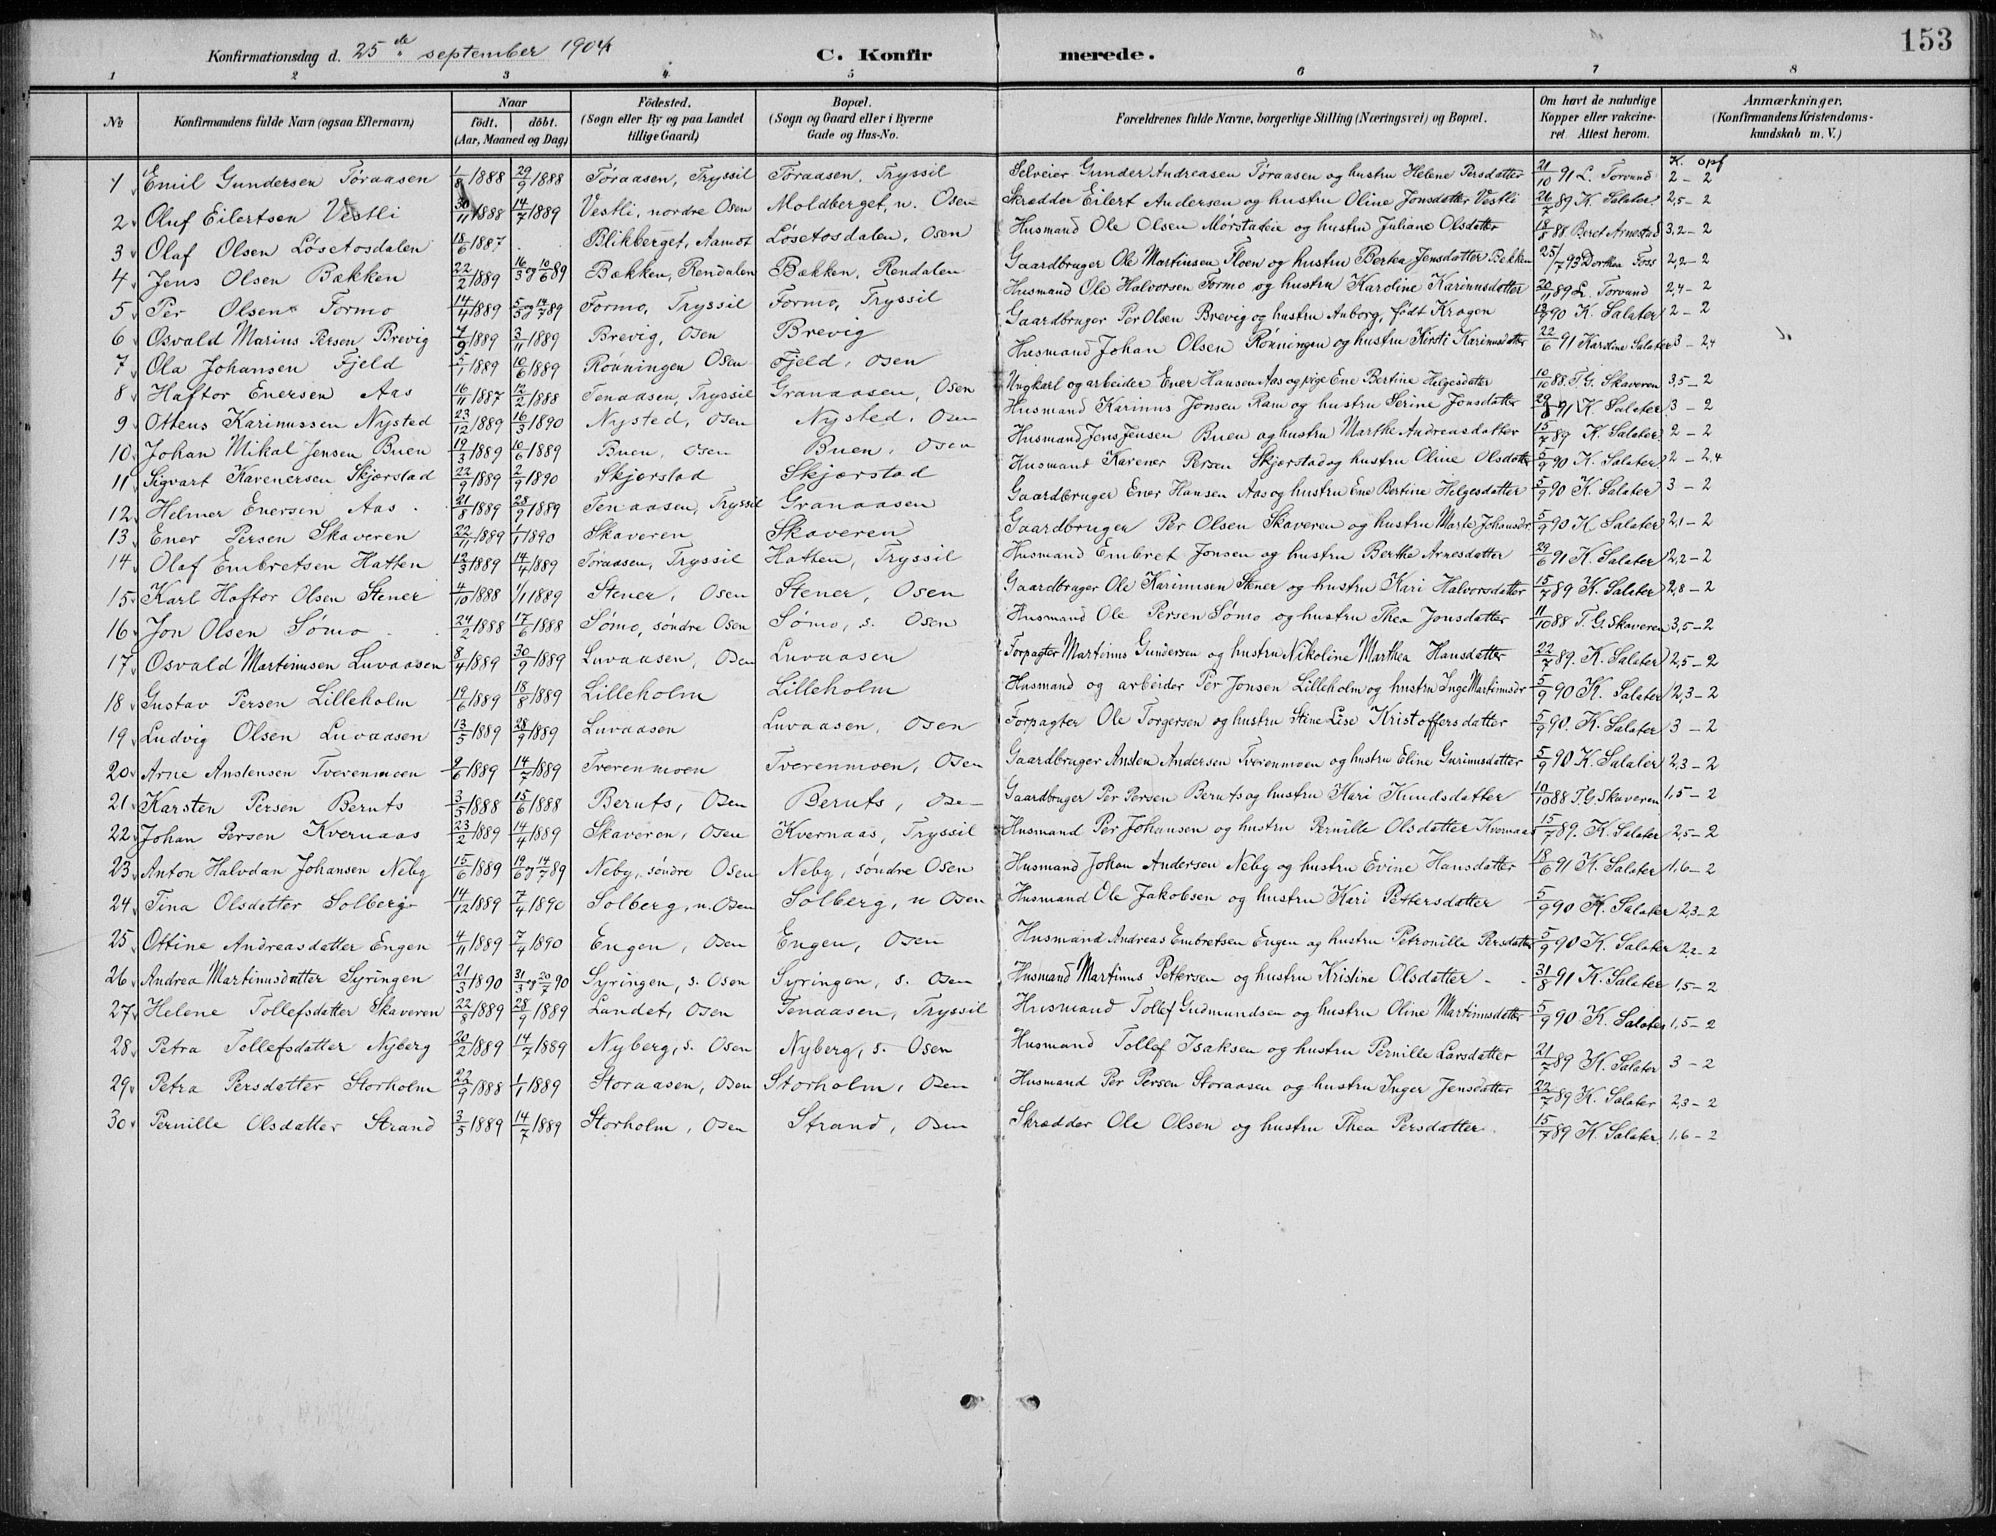 153
Konfirmationsdag d. 25de september 1904 C. Konfirmerede.
1 2 3 4 5 6 7 8
No Konfirmandens fulde Navn (ogsaa Efternavn) Naar født. døbt. (Aar, Maaned og Dag) Fødested. (Sogn eller By og paa Landet tillige Gaard) Bopæl. (Sogn og Gaard eller i Byerne Gade og Hus-No. Forældrenes fulde Navne, borgerlige Stilling (Næringsvei) og Bopæl. Om havt de naturlige Kopper eller vakcineret. Attest herom. Anmærkninger. (Konfirmandens Kristendomskundskab m. V.)
K. opf
1 Emil Gundersen Tøraasen 1/8 1888 29/9 1888 Tøraasen, Tryssil Tøraasen, Tryssil Selveier Gunder Andreasen Tøraasen og hustru Helene Persdatter 21/10 91 L. Torvund 2 - 2
2 Oluf Eilertsen Vestli 30/11 1888 14/7 1889 Vestli, nordre Osen Moldberget, n. Osen Skrædder Eilert Andersen og hustru Oline Jonsdatter Vestli 26/7 89 K. Salater 2,5 - 2
3 Olaf Olsen Løsetosdalen 18/6 1887 Blikberget, Aamot Løsetosdalen, Osen Husmand Ole Olsen Mørstadeie og hustru Juliane Olsdatter 18/8 88 Beret Arnestad 3,2 - 2
4 Jens Olsen Bækken 22/2 1889 16/3 og 10/6 89 Bækken, Rendalen Bækken, Rendalen Gaardbruger Ole Martinsen Floen og hustru Bertea Jensdatter Bekken 25/7 93 Dorthea Foss 2,2 - 2
5 Per Olsen Formo 14/4 1889 5/5 og 14/7 89 Formo, Tryssil Formo, Tryssil Husmand Ole Halvorsen Formo og hustru Karoline Karinusdatter 20/11 89 L. Torvund 2,4 - 2
6 Osvald Marius Persen Brevig 7/9 1889 3/11 1889 Brevig, Osen Brevig Gaardbruger Per Olsen Brevig og hustru Anborg, født Krogen 13/9 90 K. Salater 2 - 2
7 Ola Johansen Fjeld 5/1 1889 10/6 1889 Rønningen Osen Fjeld, Osen Husmand Johan Olsen Rønningen og hustru Kirsti Karinusdatter 22/6 91 Karoline Salater 3 - 2,4
8 Haftor Enersen Aas 16/11 1887 12/2 1888 Tenaasen, Tryssil Granaasen, Osen Ungkarl og arbeider Ener Hansen Aas og pige Ene Bertine Helgesdatter 10/10 88. T. G. Skaveren 3,5 - 2
9 Ottens Karinussen Nysted 23/12 1889 16/3 1890 Nysted, Osen Nysted, Osen Husmand Karinus Jonsen Ram og hustru Serine Jonsdatter 29/8 91 K. Salater 3 - 2
10 Johan Mikal Jensen Buen 19/3 1889 10/6 1889 Buen, Osen Buen, Osen Husmand Jens Jensen Buen og hustru Marthe Andreasdatter 15/7 89 K. Salater 2 - 2
11 Sigvart Karenersen Skjærstad 22/9 1889 2/9 1890 Skjærstad Skjærstad Husmand Karener Persen Skjærstad og hustru Oline Olsdatter 5/9 90 K. Salater 2 - 2,4
12 Helmer Enersen Aas 21/8 1889 28/9 1889 Tenaasen, Tryssil Granaasen Gaardbruger Ener Hansen Aas og hustru Ene Bertine Helgesdatter 5/9 90 K. Salater 3 - 2
13 Ener Persen Skaveren 22/11 1889 1/1 1890 Skaveren Skaveren Gaardbruger Per Olsen Skaveren og hustru Marte Johansdr 5/9 90 K Salater 2,1 - 2
14 Olaf Embretsen Hatten 12/3 1889 14/4 1889 Tøraasen, Tryssil Hatten, Tryssil Husmand Embret Jonsen og hustru Berthe Arnesdatter 29/6 91 K. Salater 2,2 - 2
15 Karl Haftor Olsen Stener 4/10 1888 1/1 1889 Stener, Osen Stener, Osen Gaardbruger Ole Karinusen Stener og hustru Kari Halvorsdatter 15/7 89 K. Salater 2,8 - 2
16 Jon Olsen Sømo 24/2 1888 17/6 1888 Sømo, søndre Osen Sømo, s. Osen Husmand Ole Persen Sømo og hustru Thea Jonsdatter 11/10 88 T. G. Skaveren 3,5 - 2
17 Osvald Martinusen Luvaasen 8/4 1889 30/9 1889 Luvaasen, Osen Luvaasen Forpagter Martinus Gundersen og hustru Nikoline Marthea Hansdatter 22/7 89. K. Salater 2,5 - 2
18 Gustav Persen Lilleholm 19/6 1889 18/8 1889 Lilleholm Lilleholm Husmand og arbeider Per Jonsen Lilleholm og hustru Inge Martinusdr 5/9 90 K. Salater 2,3 - 2
19 Ludvig Olsen Luvaasen 13/5 1889 28/9 1889 Luvaasen Luvaasen, Osen Forpagter Ole Torgersen og hustru Stine Lise Kristoffersdatter 5/9 90. K. Salater 3 - 2
20 Arne Anstensen Tverenmoen 9/6 1889 14/7 1889 Tverenmoen Tverenmoen, Osen Gaardbruger Ansten Andersen Tverenmoen og hustru Eline Gurinusdatter 5/9 90 K. Salater 2,3 - 2
21 Karsten Persen Beruts 3/5 1888 15/6 1888 Beruts, Osen Beruts, Ose- Gaardbruger Per Persen Beruts og hustru Kari Knudsdatter 10/10 88 T. G. Skaveren 1,5 - 2
22 Johan Persen Kvernaas 23/2 1889 14/4 1889 Skaveren, Osen Kvernaas, Tryssil Husmand Per Johansen og hustru Pernille Olsdatter Kvernaas 15/7 89. K. Salater 2,5 - 2
23 Anton Halvdan Johansen Neby 15/6 1889 19/6 og 14/7 89 Neby, søndre Osen Neby, søndre Osen Husmand Johan Andersen Neby og hustru Evine Hansdatter 18/6 91 K. Salater 1,6 - 2
24 Tina Olsdatter Solberg 14/12 1889 7/4 1890 Solberg, n. Osen Solberg, n Osen Husmand Ole Jakobsen og hustru Kari Pettersdatter 5/9 90 K. Salater 2,3 - 2
25 Ottine Andreasdatter Engen 4/11 1889 7/4 1890 Engen, Osen Engen, Osen Husmand Andreas Embretsen Engen og hustru Petronille Persdatter 5/9 90 K. Salater 2,2 - 2
26 Andrea Martinusdatter Syringen 21/3 1890 31/3 og 20/7 90 Syringen, s. Osen Syringen, s. Osen Husmand Martinus Pettersen og hustru Kristine Olsdatter 31/8 91 K. Salater 1,5 - 2
27 Helene Tollefsdatter Skaveren 22/8 1889 28/9 1889 Landet, Osen Tenaasen, Tryssil Husmand Tollef Gudmundsen og hustru Oline Martinusdatter 5/9 90. K. Salater 1,5 - 2
28 Petra Tollefsdatter Nyberg 20/2 1889 14/7 1889 Nyberg, s. Osen Nyberg, s. Osen Husmand Tollef Isaksen og hustru Pernille Larsdatter 21/7 89 K. Salater 3 - 2
29 Petra Persdatter Storholm 22/9 1888 1/1 1889 Storaasen, Osen Storholm, Osen Husmand Per Persen Storaasen og hustru Inger Jensdatter 22/7 89 K. Salater 2,3 - 2
30 Pernille Olsdatter Strand 3/5 1889 14/7 1889 Storholm, Osen Strand, Osen Skrædder Ole Olsen og hustru Thea Persdatter 15/7 89 K. Salater 1,6 - 2